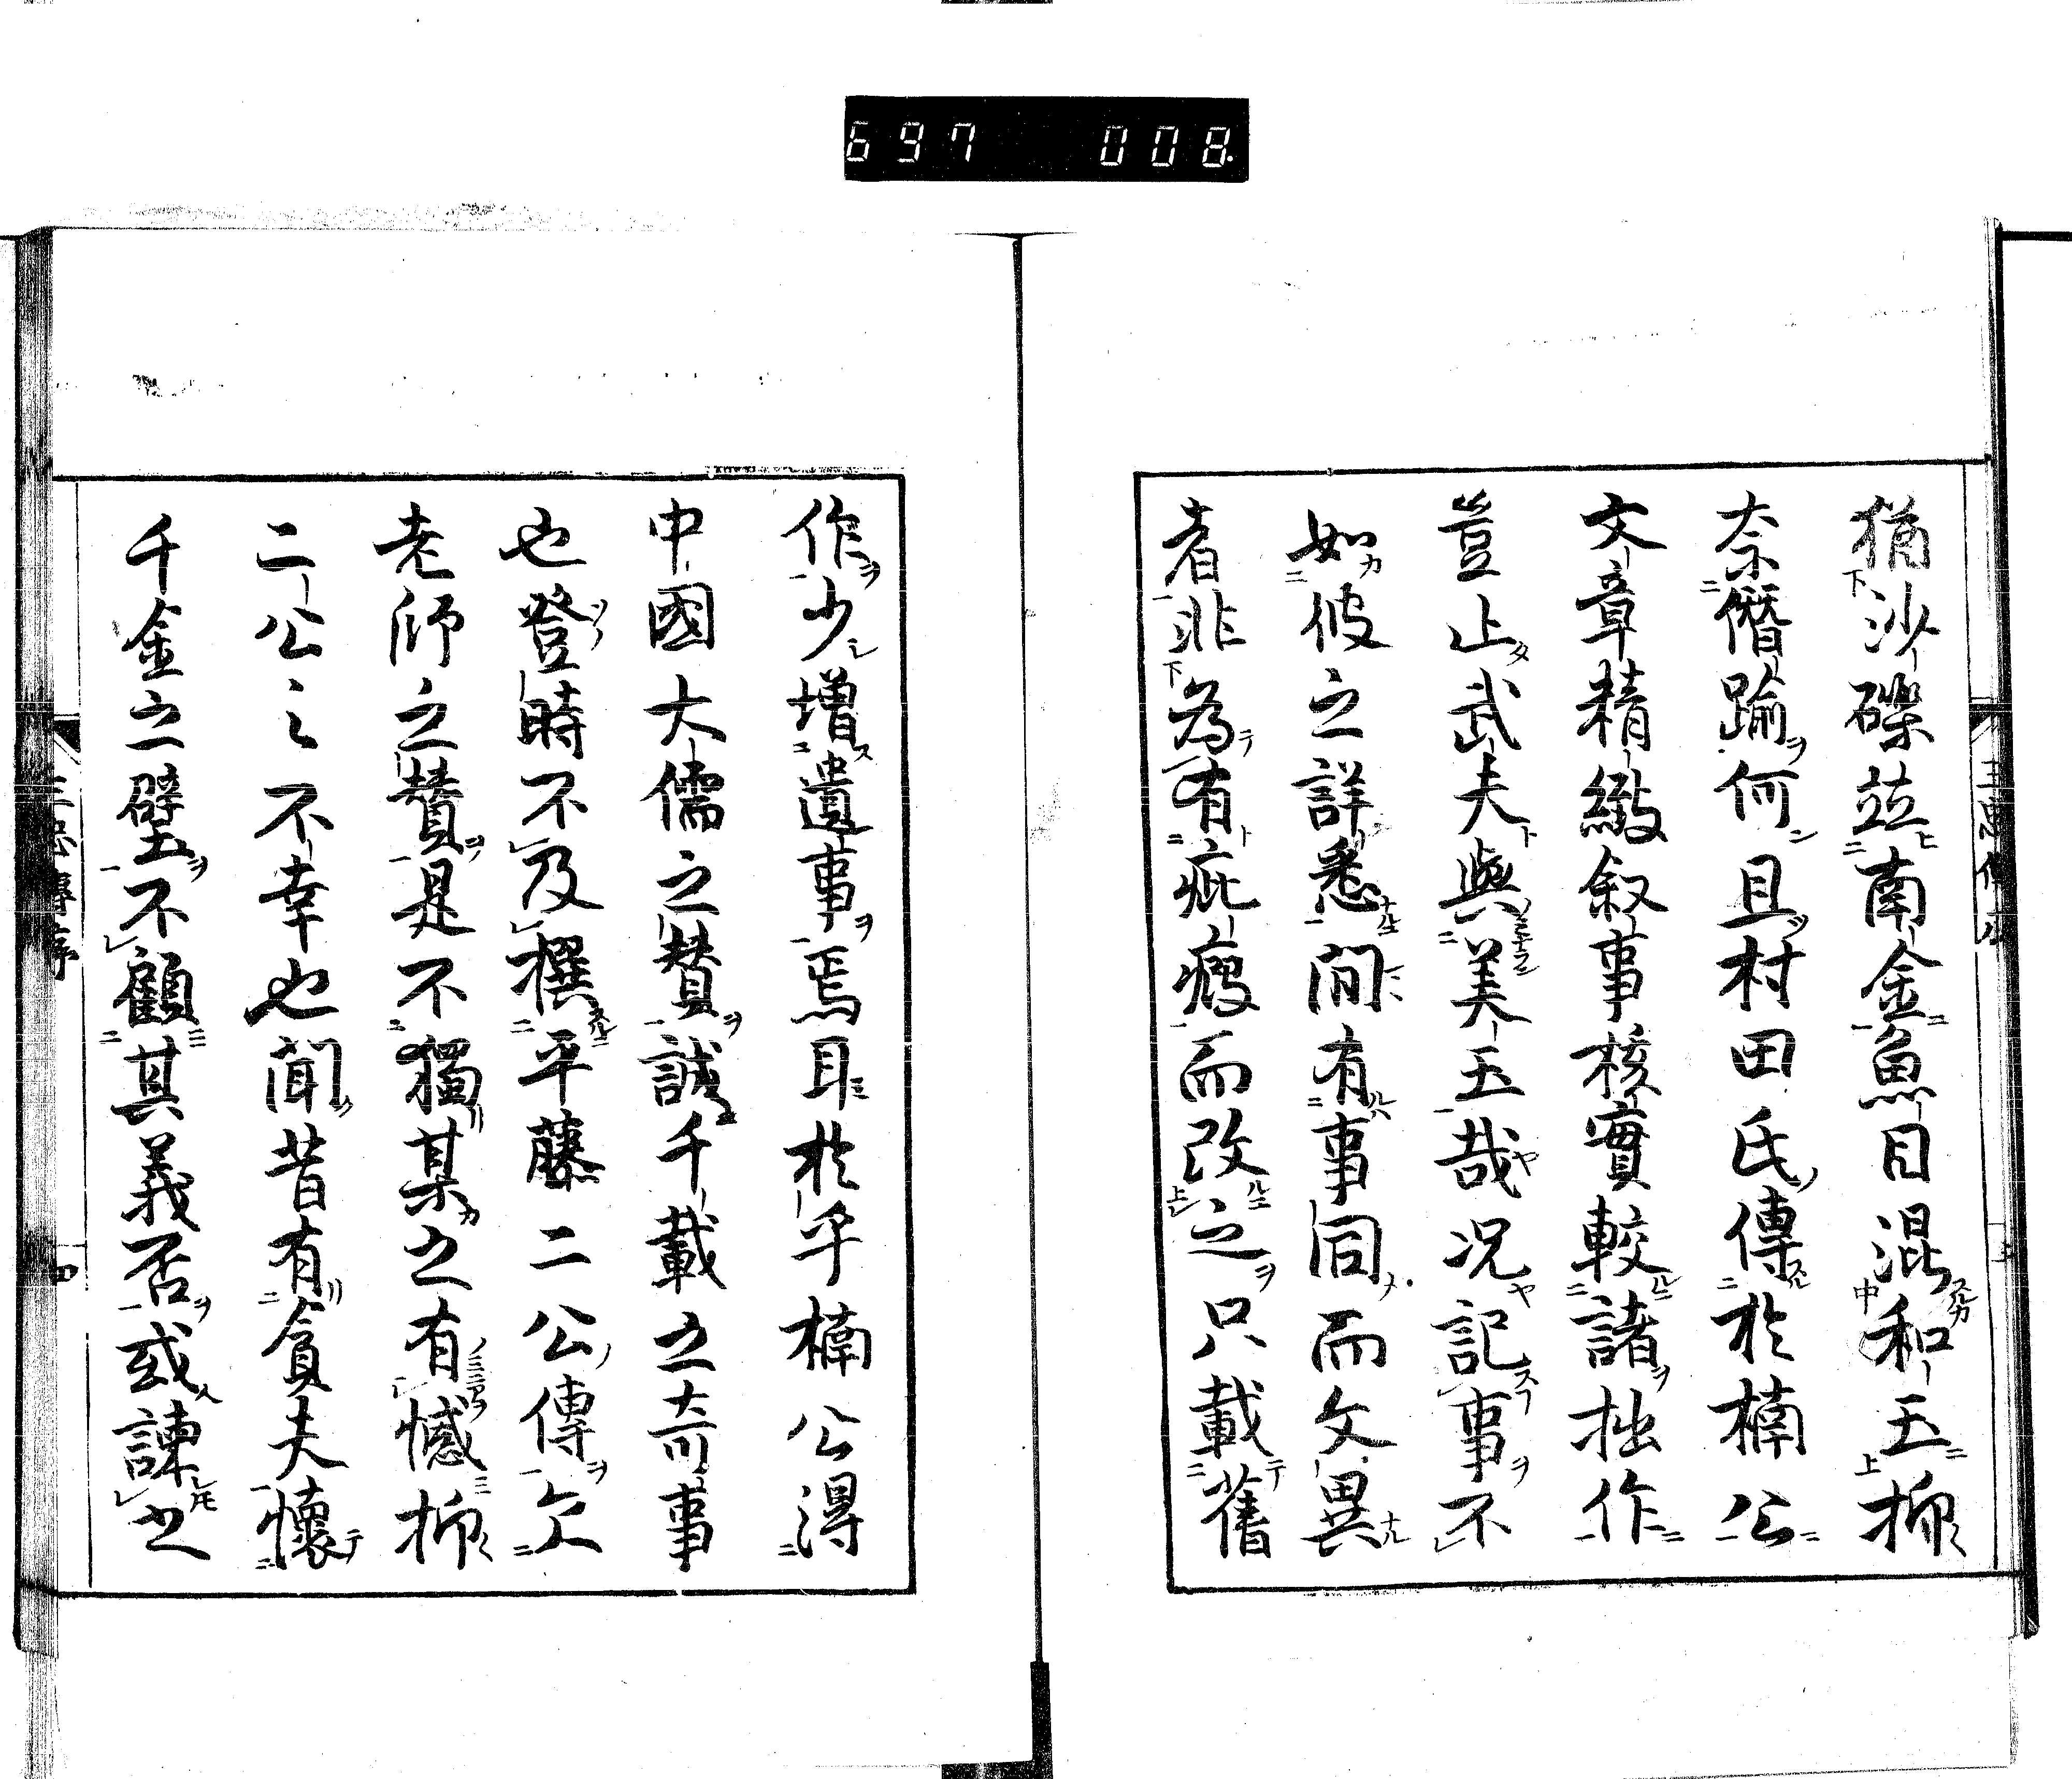 697 008
猶沙礫竝南金魚目混和玉抑
奈僭踰何且村田氏傳於楠公
文章精緻叙事核實較諸拙作
豈止武夫與美玉哉況記事不
如彼之詳悉間有事同而文異
者非為有疵瘢而改之只載舊
作少增遺事焉耳於乎楠公得
中國大儒之賛誠千載之奇事
也登時不及撰平藤二公傳乞
老師之賛是不獨某之有憾抑
二公之不幸也聞昔有貪夫懷
千金之璧不顧其義否或諫之
三忠傳序
四